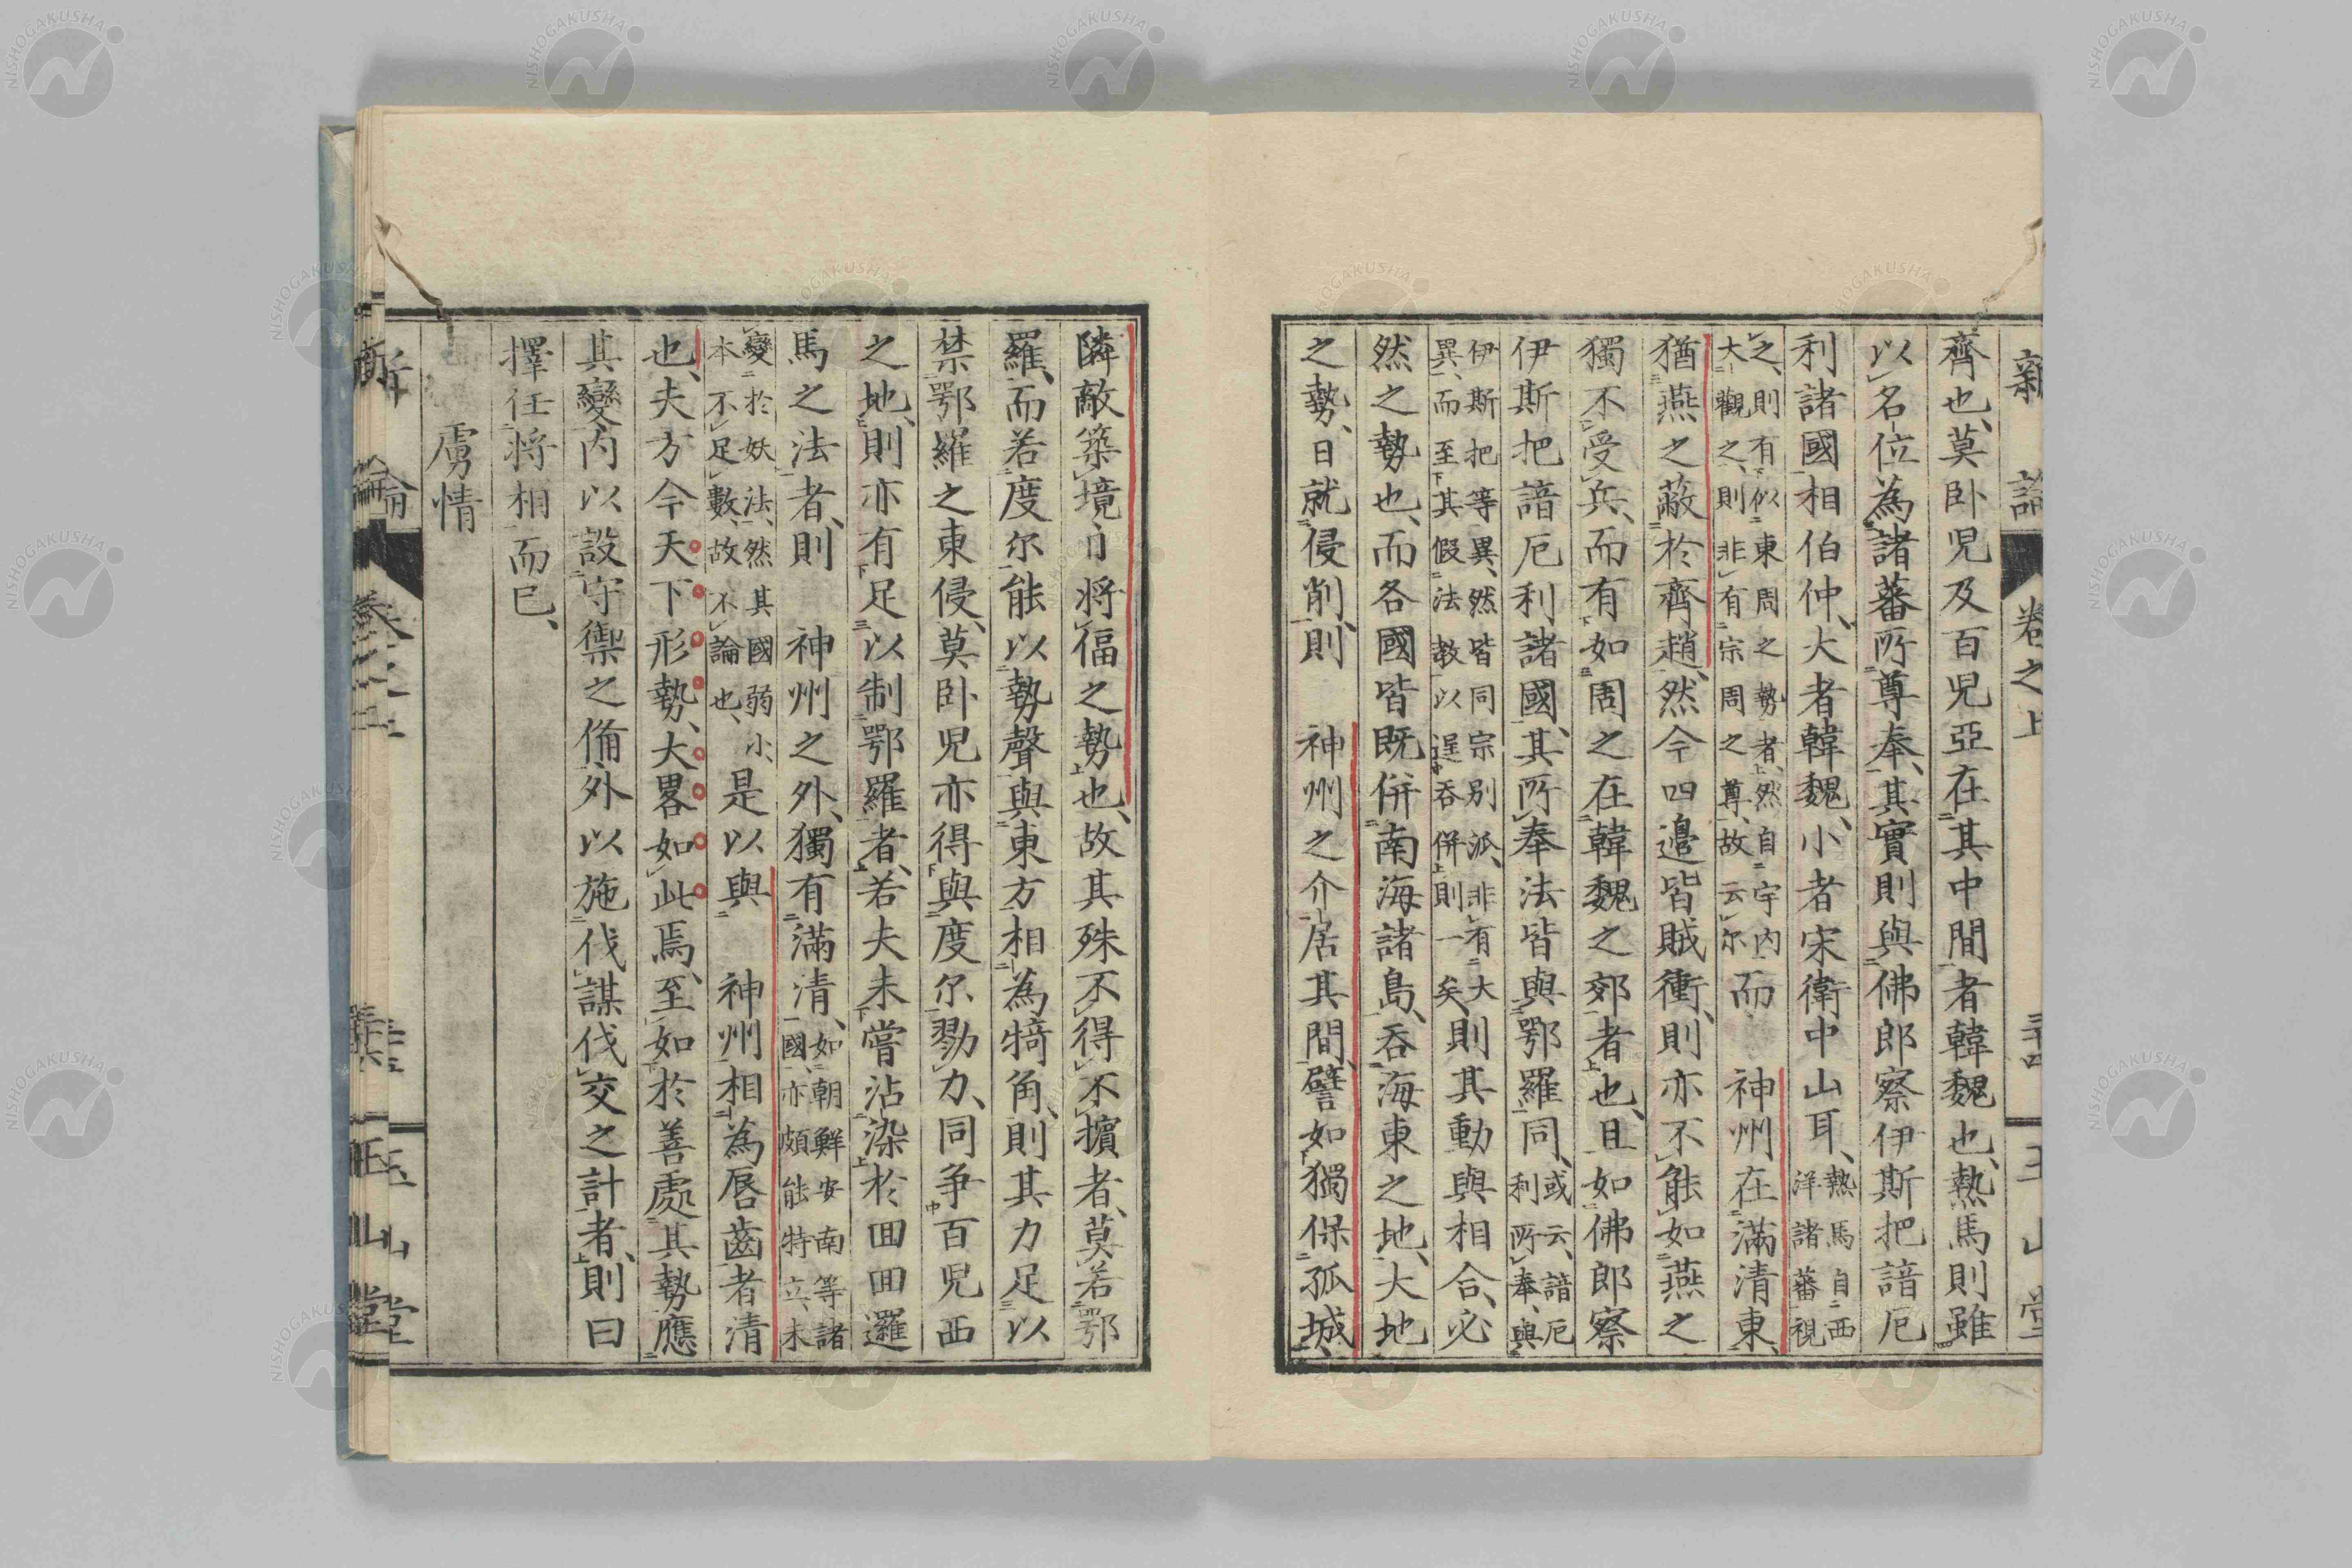 新論 卷之上 三十四 玉山堂
齊也、莫卧児及百児亞在其中間者韓魏也、熱馬則雖
以名位為諸蕃所尊奉、其實則與佛郎察伊斯把諳厄
利諸國相伯仲、大者韓魏、小者宋衛中山耳、熱馬自西洋諸蕃視
之、則有似東周之勢者、然自宇内大觀之、則非有宗周之尊、故云尔而 神州在滿清東、
猶燕之蔽於齊趙、然今四邊皆賊衝、則亦不能如燕之
獨不受兵、而有如周之在韓魏之郊者也、且如佛郎察
伊斯把諳厄利諸國、其所奉法皆與鄂羅同、或云、諳厄利所奉、與
伊斯把等異、然皆同宗別派、非有大異、而至其假法教以逞吞併則一矣、則其動與相合、必
然之勢也、而各國皆既併南海諸島、吞海東之地、大地
之勢、日就侵削、則 神州之介居其間、譬如獨保孤城
隣敵築境、日將偪之勢也、故其殊不得不擯者、莫若鄂
羅、而若度尔能以勢聲與東方相為犄角、則其力足以
禁鄂羅之東侵、莫卧児亦得與度尔勠力、同爭百児西
之地、則亦有足以制鄂羅者、若夫未嘗沾染於回回邏
馬之法者、則 神州之外、獨有滿清、如朝鮮安南等諸國、亦頗能特立、未
變於妖法、然其國弱小、本不足數、故不論也、是以與 神州相為唇齒者清
也、夫方今天下形勢、大畧如此焉、至如於善處其勢應
其變、内以設守禦之俻、外以施伐謀伐交之計者、則曰
擇任將相而已、
虜情
新論 卷之上 玉山堂